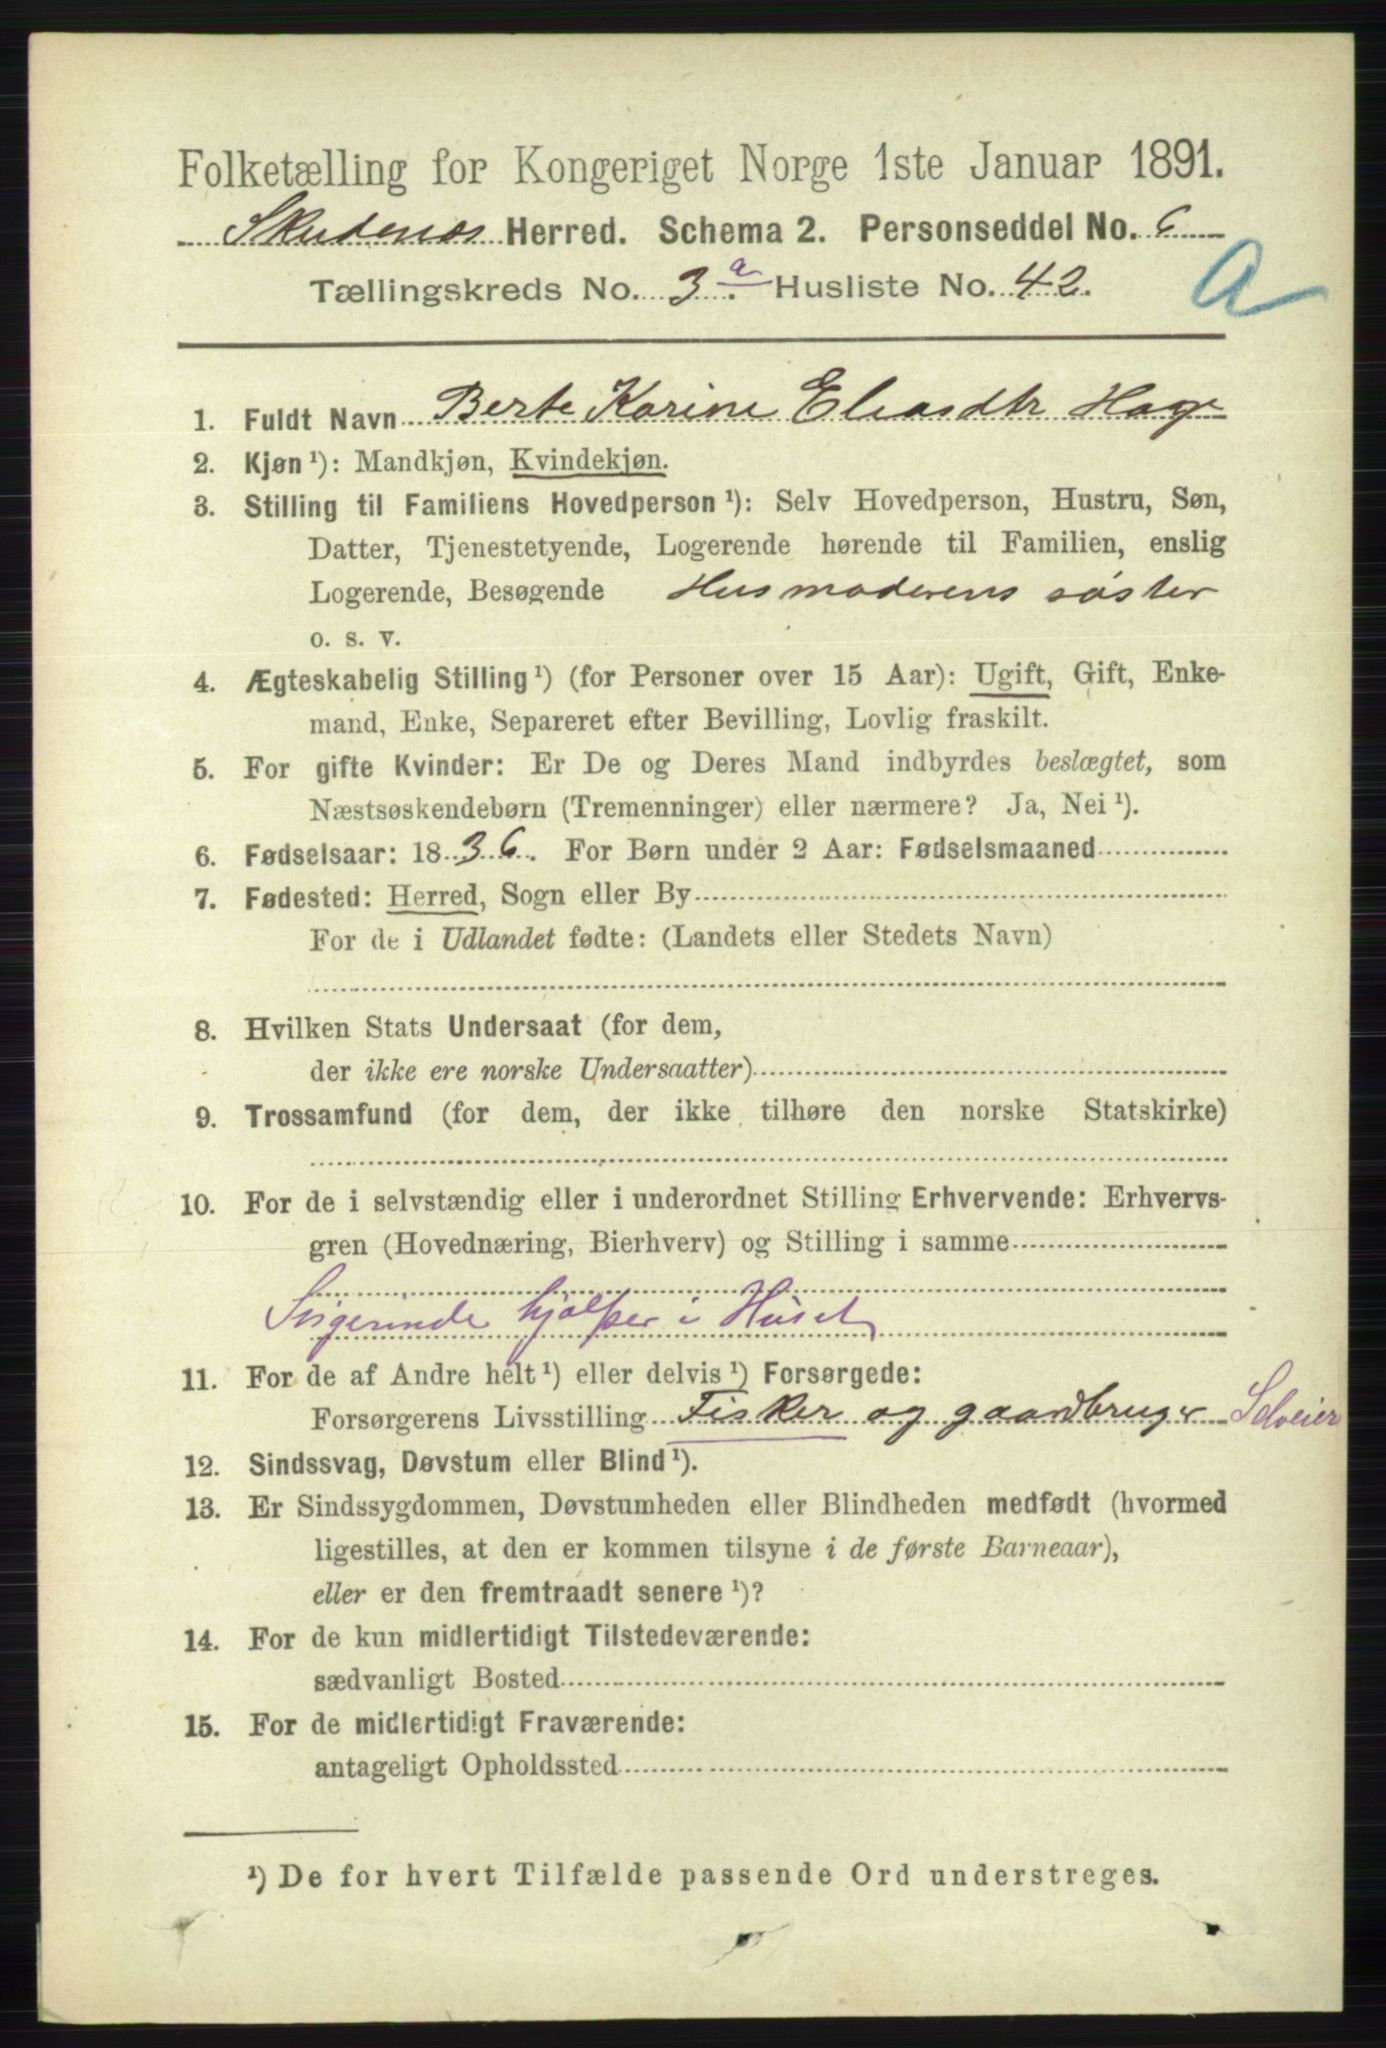 Folketælling for Kongeriget Norge 1ste Januar 1891.
Skudenæs Herred. Schema 2. Personseddel No. 6
Tællingskreds No. 3.a Husliste No. 42.
A
1. Fuldt Navn Berte Karine Eliasdtr Hage
2. Kjøn ¹): Mandkjøn, Kvindekjøn.
3. Stilling til Familiens Hovedperson ¹): Selv Hovedperson, Hustru, Søn,
Datter, Tjenestetyende, Logerende hørende til Familien, enslig
Logerende, Besøgende Husmoderens søster
o. s. v.
4. Ægteskabelig Stilling ¹) (for Personer over 15 Aar): Ugift, Gift, Enke-
mand, Enke, Separeret efter Bevilling, Lovlig fraskilt.
5. For gifte Kvinder: Er De og Deres Mand indbyrdes beslægtet, som
Næstsøskendebørn (Tremenninger) eller nærmere? Ja, Nei ¹).
6. Fødselsaar: 1836. For Børn under 2 Aar: Fødselsmaaned
7. Fødested: Herred, Sogn eller By
For de i Udlandet fødte: (Landets eller Stedets Navn)
8. Hvilken Stats Undersaat (for dem,
der ikke ere norske Undersaatter)
9. Trossamfund (for dem, der ikke tilhøre den norske Statskirke)
10. For de i selvstændig eller i underordnet Stilling Erhvervende: Erhvervs-
gren (Hovednæring, Bierhverv) og Stilling i samme
hjælper i Huset
11. For de af Andre helt ¹) eller delvis ¹) Forsørgede:
Forsørgerens Livsstilling Fisker og gaardbruger Selveier
12. Sindssvag, Døvstum eller Blind ¹).
13. Er Sindssygdommen, Døvstumheden eller Blindheden medfødt (hvormed
ligestilles, at den er kommen tilsyne i de første Barneaar),
eller er den fremtraadt senere ¹)?
14. For de kun midlertidigt Tilstedeværende:
sædvanligt Bosted
15. For de midlertidigt Fraværende:
antageligt Opholdssted
¹) De for hvert Tilfælde passende Ord understreges.